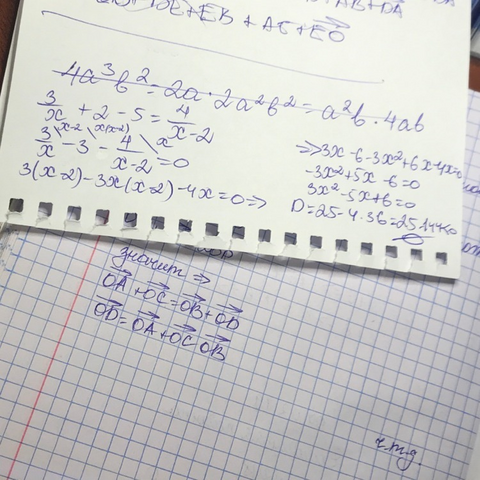 + EB + AC + EO
4a³b² = 2a · 2a²b² = a²b · 4ab
3/x + 2 - 5 = 4/x-2
3/x - 3 - 4/x-2 = 0
3(x-2) - 3x(x-2) - 4x = 0 =>
=> 3x - 6 - 3x² + 6x - 4x =
-3x² + 5x - 6 = 0
3x² - 5x + 6 = 0
D = 25 - 4 · 36 = 25 - 144 < 0
значит =>
OA + OC = OB + OD
OD = OA + OC OB
ч.т.д.